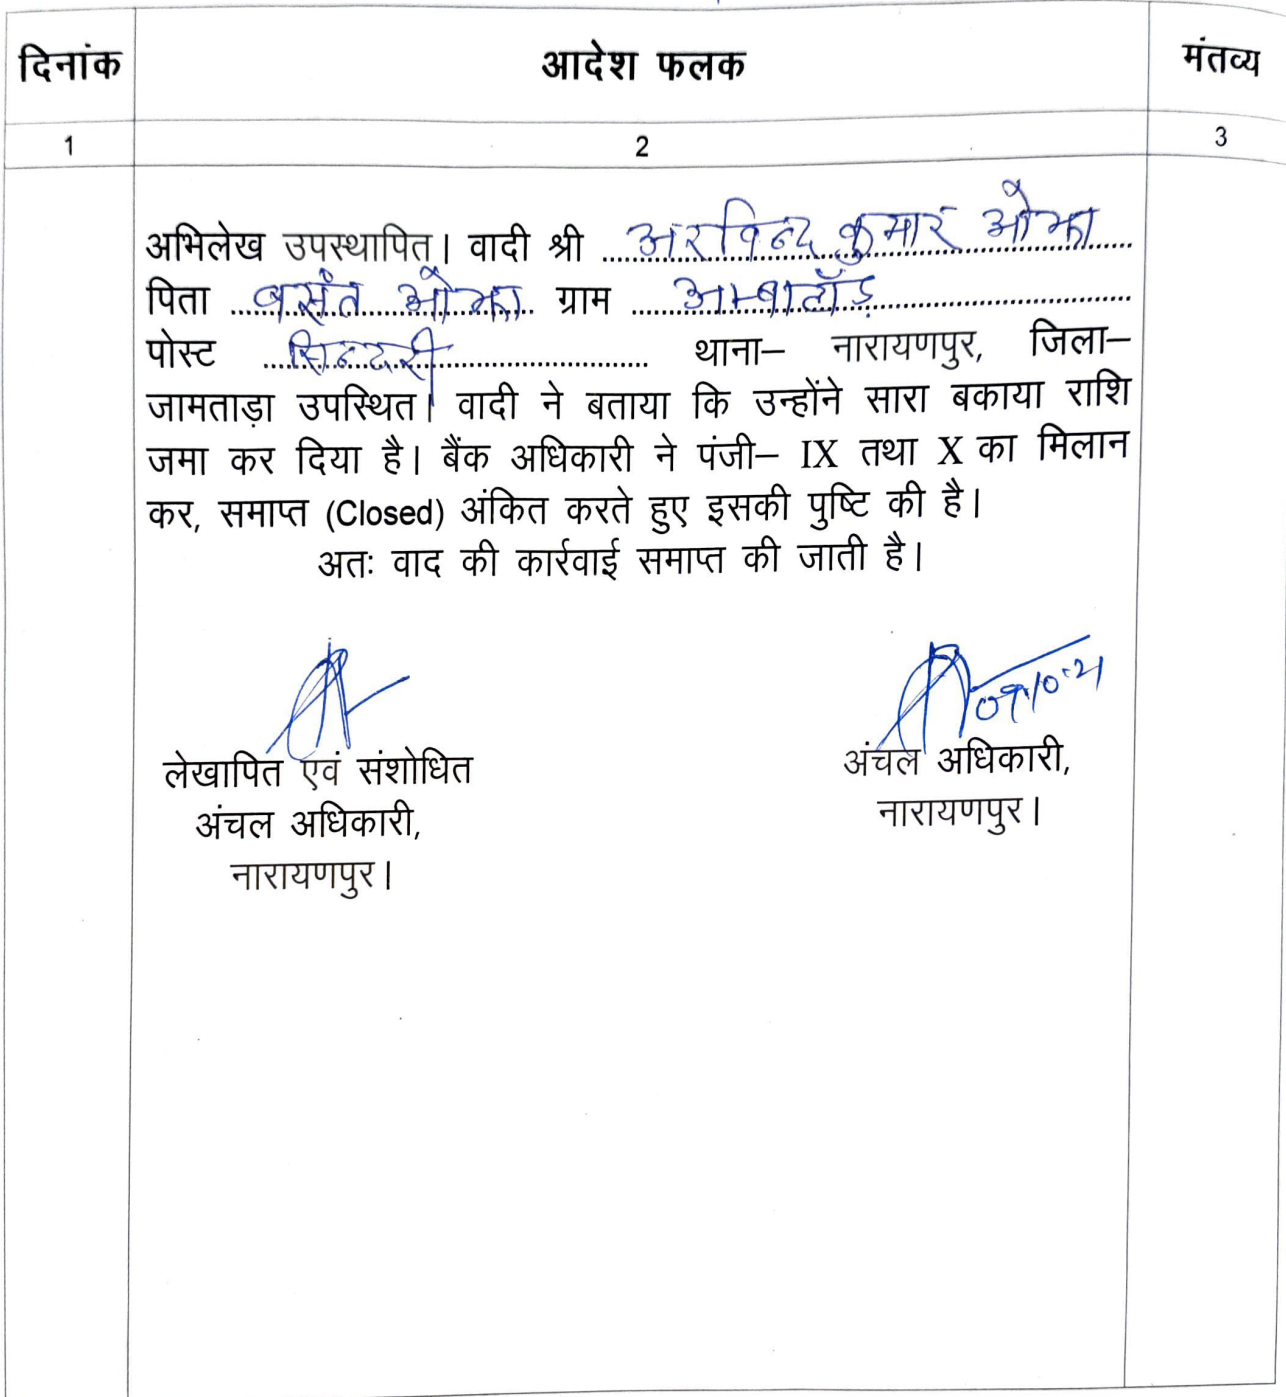 दिनांक आदेश फलक मंतव्य
1 2 3
अभिलेख उपस्थापित। वादी श्री अरविन्द कुमार ओझा
पिता बसंत ओझा ग्राम अम्बाटाँड़
पोस्ट सिन्दरी थाना– नारायणपुर, जिला–
जामताड़ा उपस्थित। वादी ने बताया कि उन्होंने सारा बकाया राशि
जमा कर दिया है। बैंक अधिकारी ने पंजी– IX तथा X का मिलान
कर, समाप्त (Closed) अंकित करते हुए इसकी पुष्टि की है।
अतः वाद की कार्रवाई समाप्त की जाती है।
लेखापित एवं संशोधित
अंचल अधिकारी,
नारायणपुर।
अंचल अधिकारी,
नारायणपुर।